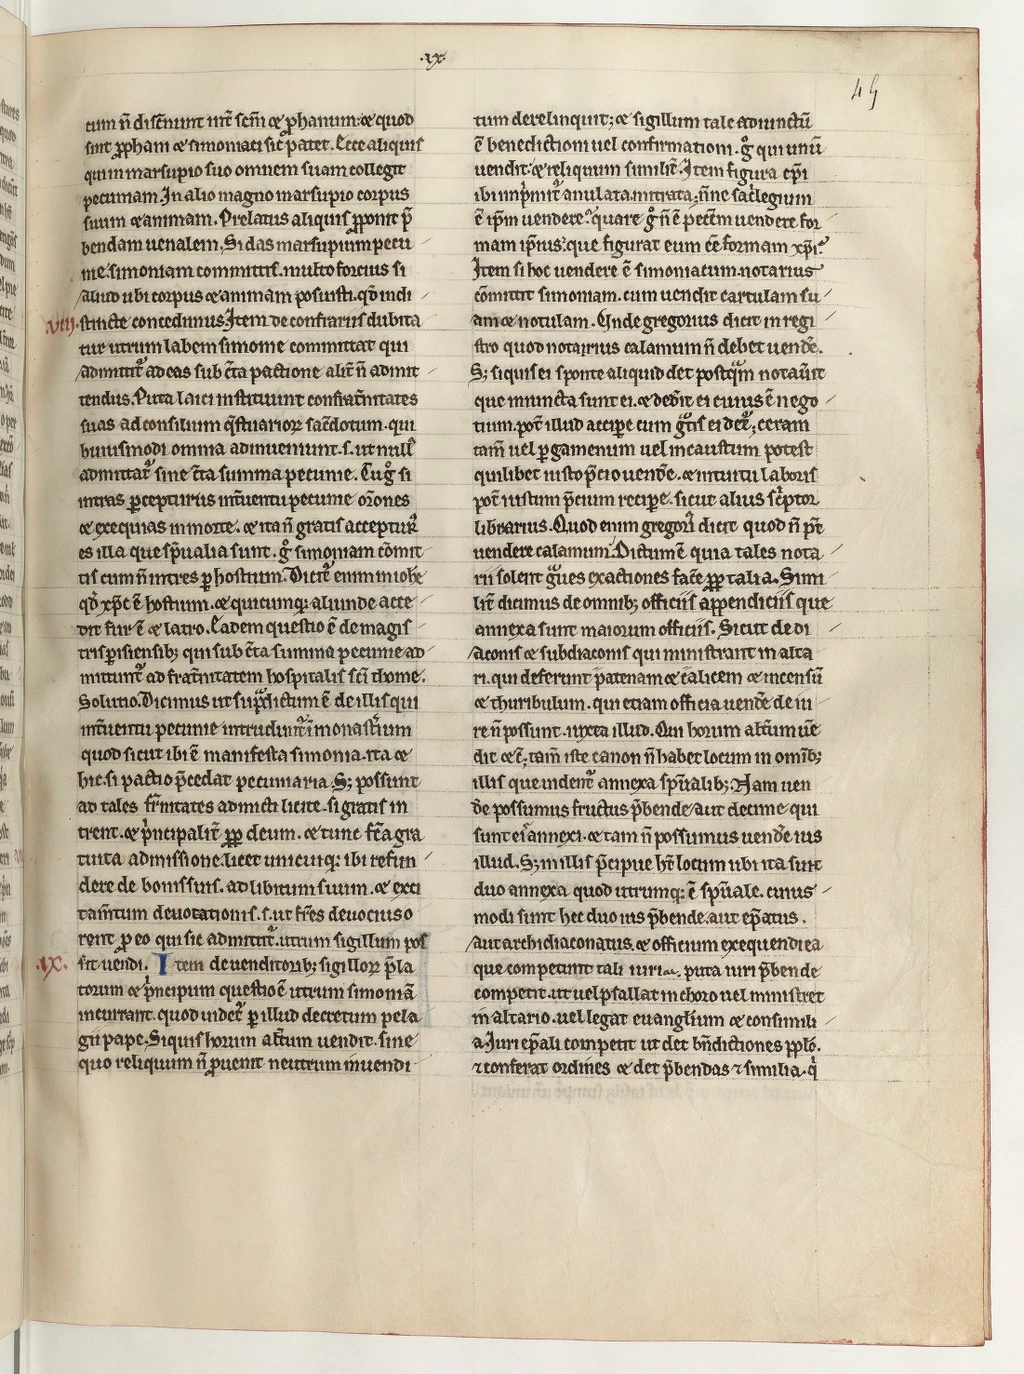 .ix.
49
cum n̄ discūnt int̄ scm̄ ⁊ ꝓphanum: ⁊ quod
sint ꝓpham ⁊ simoniaci sic̄ patet. Ecce aliquis
qui in marsupio suo omnem suam collegit
pecuniam. In alio magno marsupio corpus
suum ⁊ animam. Prelatus aliquis ꝓponit p̄
bendam uenalem. Si das marsupium pecu
nie simoniam committis. multo forcius si
aliud ubi corpus ⁊ animam posuisti. qd̄ indi
viii. stincte concedimus. Item de confrariis dubita
tur utrum labem simonie committat qui
admittit̄ ad eas sub c̄ta pactione alit̄ n̄ admit
tendus. Puta laici instituunt confrat̄nitates
suas ad consilium q̄stuarioꝝ sac̄dotum. qui
huiusmodi omnia adinueniunt. s. ut null̄
admittat̄ sine c̄ta summa pecunie. Tu g̊ si
intras ꝑcepturus int̄uentu pecunie or̄ones
⁊ exequias in morte. ⁊ ita n̄ gratis acceptur̄
es illa que sp̄ualia sunt. g̊ simoniam cōmit
tis cum n̄ intres ꝑ hostium. Dicit̄ enim in ioh̄e
qd̄ xp̄c ē hostium. ⁊ quicumqꝫ aliunde acce
dit fur ē ⁊ latro. Eadem questio ē de magis
tris ꝑisiensibꝫ qui sub c̄ta summa pecunie ad
mittunt̄ ad frat̄nitatem hospitalis sc̄i thome.
Solutio. Dicimus ut sup̄dictum ē de illis qui
int̄uentu pecunie intrudunt̄ ī monast̄ium
quod sicut ibi ē manifesta simonia. ita ⁊
hic. si pactio p̄cedat pecuniaria. Sꝫ possunt
ad tales fr̄nitates admitti licite. si gratis in
trent. ⁊ p̄ncipalit̄ ꝓp̄ deum. ⁊ tunc fc̄a gra
tuita admissione. licet unicuiqꝫ ibi refun
dere de bonis suis. ad libitum suum. ⁊ exci
tam̄tum deuotationis. s. ut fr̄es deuocius o
rent ꝓ eo qui sic admittit̄. utrum sigillum pos
ix. sit uendi. Item de uenditoribꝫ sigilloꝝ p̄la
torum ⁊ p̄ncipum questio ē utrum simoniā
incurrant. quod uidet̄ ꝑ illud decretum pela
gii pape. Si quis horum alt̄um uendit. sine
quo reliquum n̄ ꝓuenit neutrum inuendi
tum derelinquit; ⁊ sigillum tale adiunctū
ē benedictioni uel confirmationi. g̊ qui unū
uendit. ⁊ reliquum similit̄. Item figura xp̄i
ibi inp̄mit̄ anulata. mitrata; n̄ne sac̄legium
ē ip̄m uendere? quare g̊ n̄ ē pec̄tm uendere for
mam ip̄ius: que figurat eum c̄e formam xp̄i?
Item si hoc uendere ē simoniacum. notarius
cōmittit simoniam. cum uendit cartulam su
am ⁊ notulam. Unde gregorius dicit in regi
stro quod notarius calamum n̄ debet uende̅.
Sꝫ si quis ei sponte aliquid det postq̄m notau̅it
que iniuncta sunt ei. ⁊ debit̄ ei cuius ē nego
tium. pot̄ illud accipe cum gr̄tis ei det̄; ceram
tam̄ uel ꝑgamenum uel incaustum potest
quilibet iusto p̄cio uende̅. ⁊ intuitu laboris
pot̄ iustum p̄cium recipe. sicut alius sc̄ptor
librarius. Quod enim gregori dicit quod n̄ pōt
uendere calamum. Dictum ē quia tales nota
rii solent g̅ues exactiones face̅ ꝓp̄ talia. Simi
lit̄ dicimus de omnibꝫ officiis appendiciis que
annexa sunt maiorum officiis. Sicut de di
aconis ⁊ subdiaconis qui ministrant in alta
ri. qui deferunt patenam ⁊ calicem ⁊ incensū
⁊ thuribulum. qui etiam officia uende̅ de iu
re n̄ possunt. iuxta illud. Qui horum alt̄um uē
dit ⁊ c̄ꝫ tam̄ iste canon n̄ habet locum in omibꝫ
illis que uident̄ annexa sp̄ualibꝫ. Nam uen
de̅ possumus fructus p̄bende aut decime qui
sunt eis annexi. ⁊ tam̄ n̄ possumus uende̅ ius
illud. Sꝫ in illis p̄cipue ht̄ locum ubi ita sunt
duo annexa quod utrumqꝫ ē sp̄uale. cuius
modi sunt hec duo ius p̄bende. aut ep̄atus.
aut archidiaconatus. ⁊ officium exequendi ea
que competunt tali iuri. puta iuri p̄bende
competit. ut uel psallat in choro uel ministret
in altario. uel legat euanglium ⁊ consimili
a. Iuri ep̄ali competit ut det bn̄dictiones pplō.
⁊ conferat ordines ⁊ det p̄bendas ⁊ similia. q̄